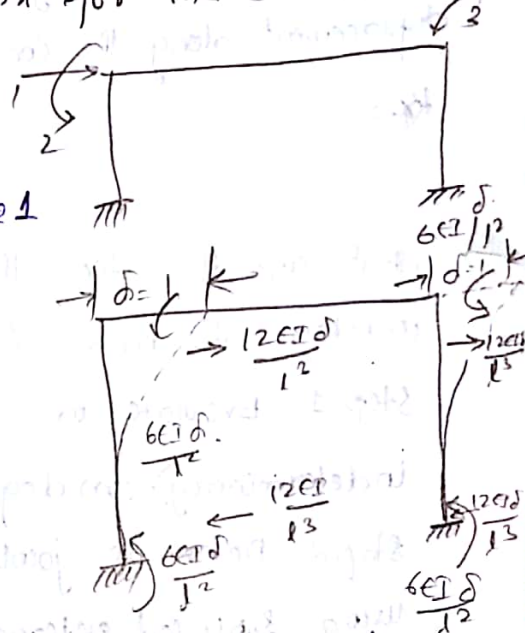 3
1
2
e 1
6EI/l² δ
δ=1
δ=1
12EIδ/l²
12EIδ/l³
6EIδ/l²
12EI/l³
12EIδ/l³
6EIδ/l²
6EIδ/l²